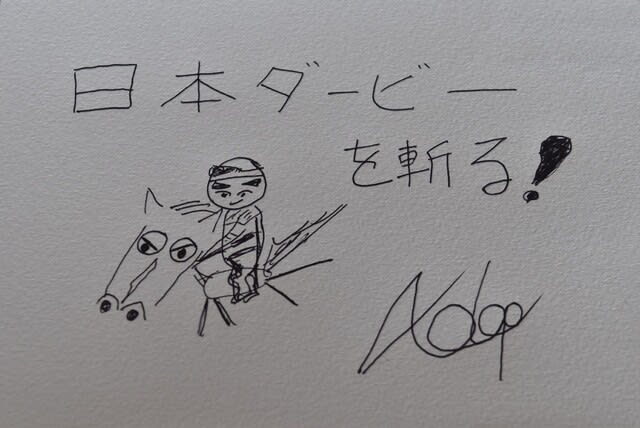 日本ダービー
を斬る!